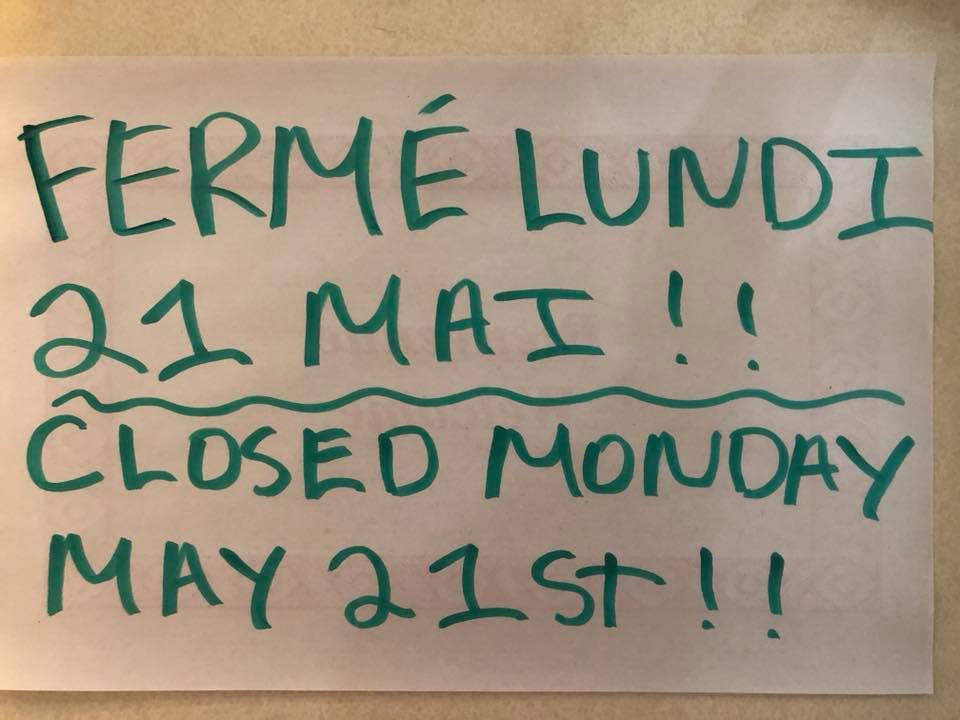 FERMÉ LUNDI
21 MAI !!
CLOSED MONDAY
MAY 21St !!